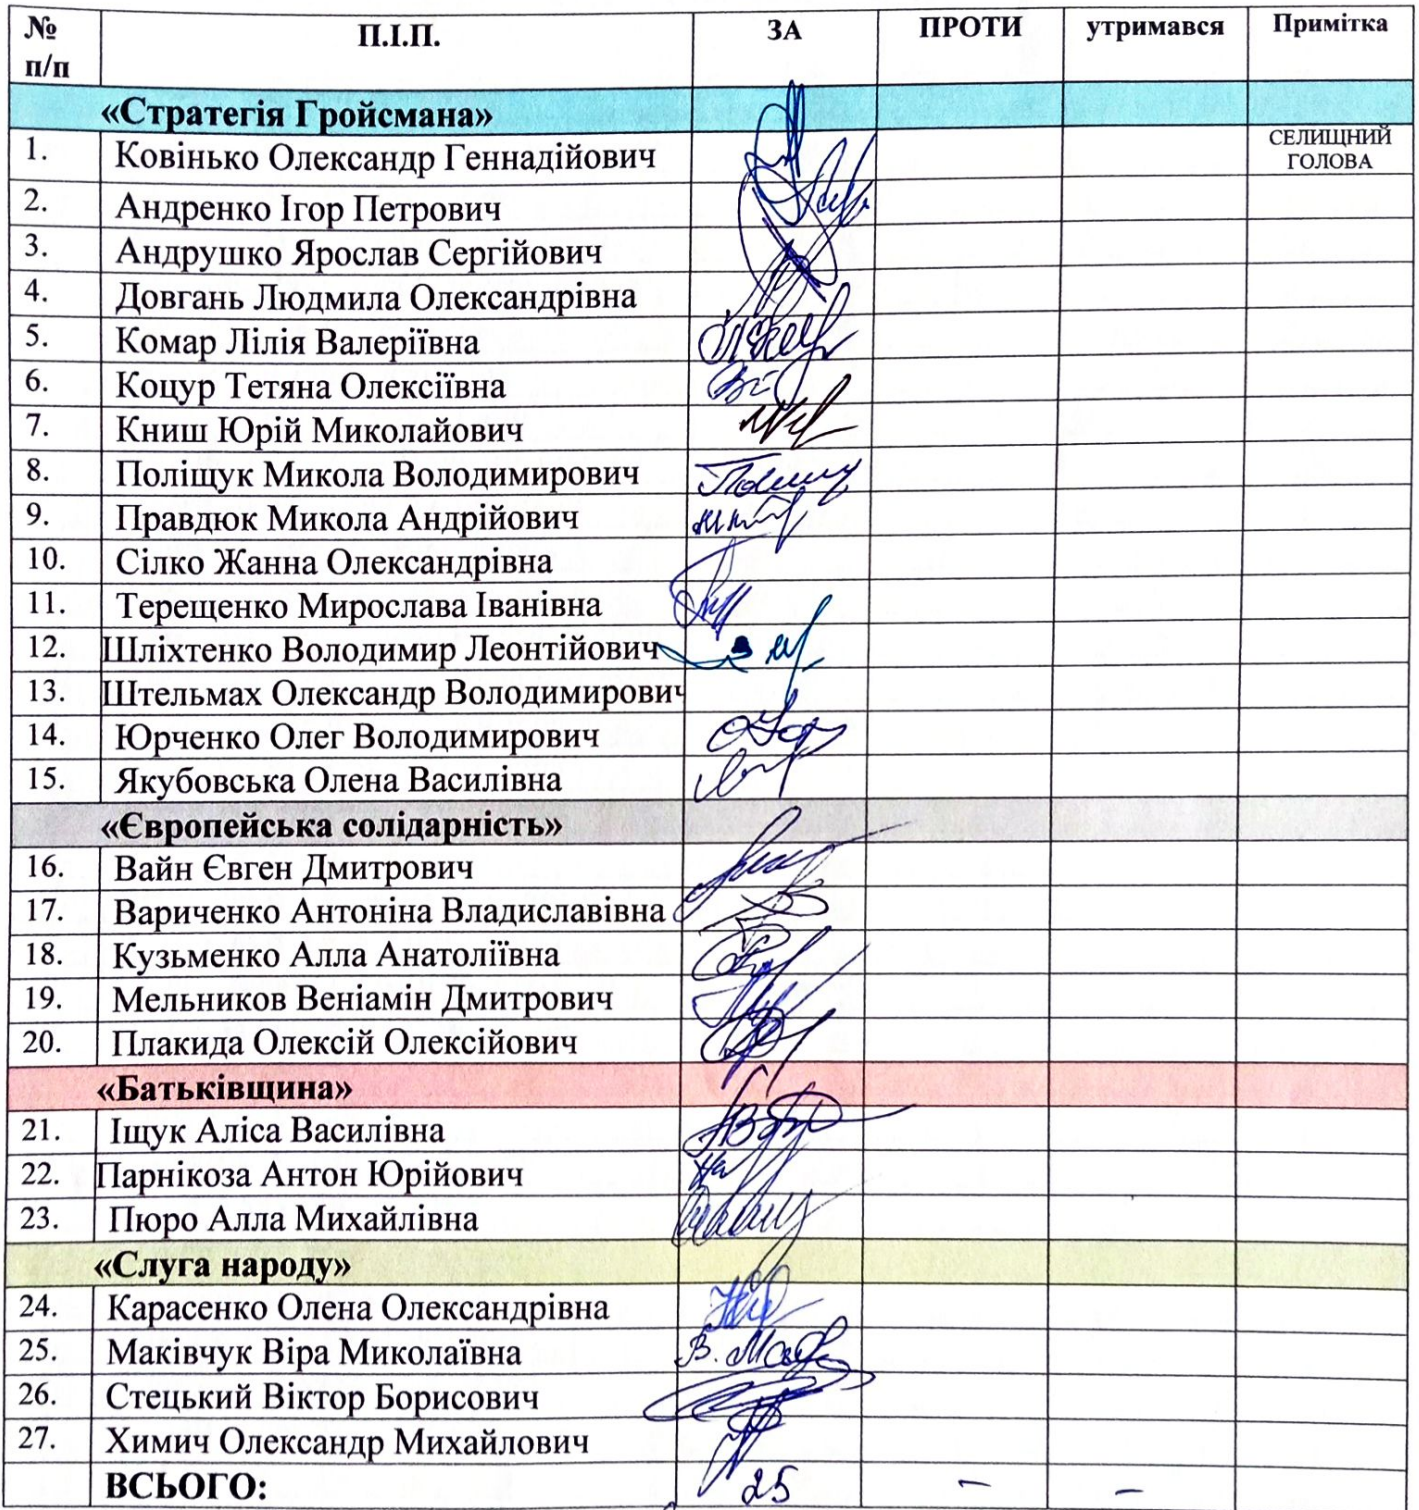 № п/п П.І.П. ЗА ПРОТИ утримався Примітка
«Стратегія Гройсмана»
1. Ковінько Олександр Геннадійович СЕЛИЩНИЙ ГОЛОВА
2. Андренко Ігор Петрович
3. Андрушко Ярослав Сергійович
4. Довгань Людмила Олександрівна
5. Комар Лілія Валеріївна
6. Коцур Тетяна Олексіївна
7. Книш Юрій Миколайович
8. Поліщук Микола Володимирович
9. Правдюк Микола Андрійович
10. Сілко Жанна Олександрівна
11. Терещенко Мирослава Іванівна
12. Шліхтенко Володимир Леонтійович
13. Штельмах Олександр Володимирович
14. Юрченко Олег Володимирович
15. Якубовська Олена Василівна
«Європейська солідарність»
16. Вайн Євген Дмитрович
17. Вариченко Антоніна Владиславівна
18. Кузьменко Алла Анатоліївна
19. Мельников Веніамін Дмитрович
20. Плакида Олексій Олексійович
«Батьківщина»
21. Іщук Аліса Василівна
22. Парнікоза Антон Юрійович
23. Пюро Алла Михайлівна
«Слуга народу»
24. Карасенко Олена Олександрівна
25. Маківчук Віра Миколаївна
26. Стецький Віктор Борисович
27. Химич Олександр Михайлович
ВСЬОГО: 25 – –